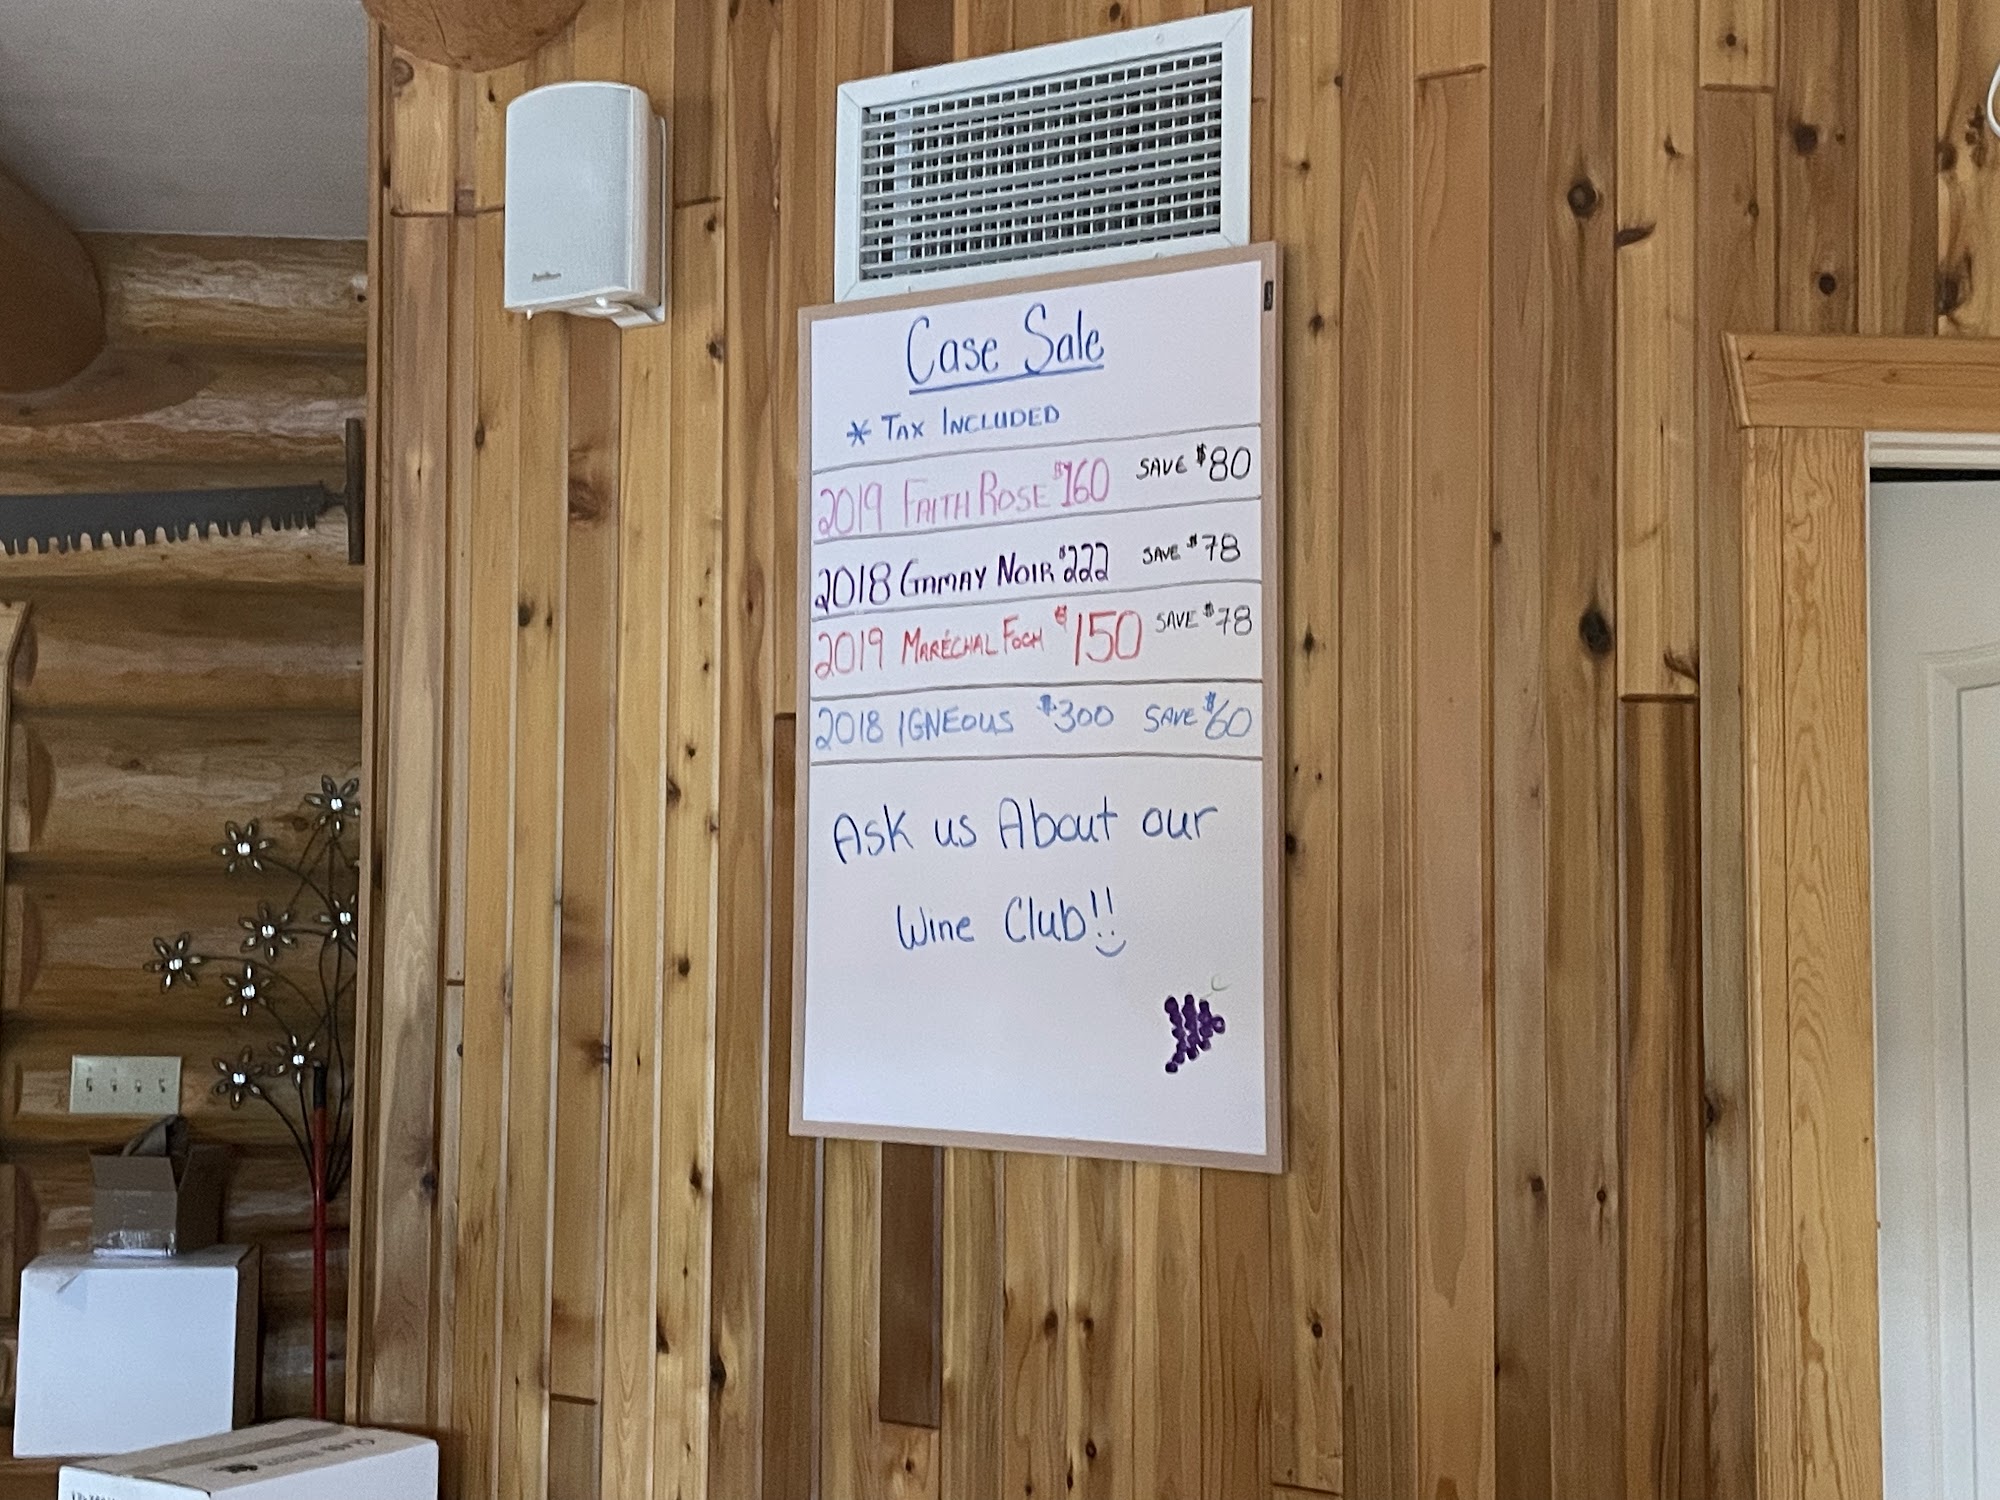 Case Sale
* TAX INCLUDED
2019 FAITH ROSE $160 SAVE $80
2018 GAMAY NOIR $222 SAVE $78
2019 MARÉCHAL FOCH $150 SAVE $78
2018 IGNEOUS $300 SAVE $60
Ask us About our
Wine Club!!